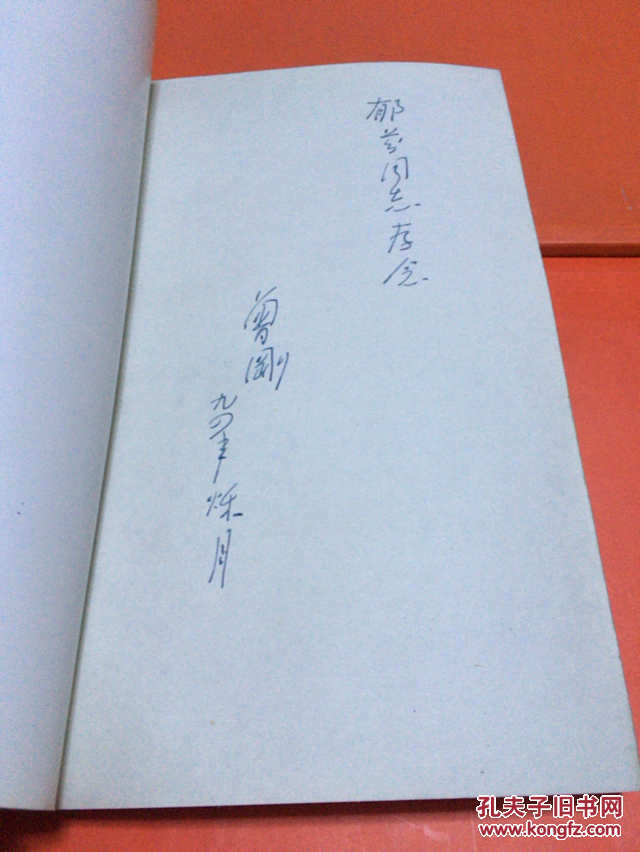 郁芬同志存念
曾剛
九四年烁月
孔夫子旧书网
www.kongfz.com